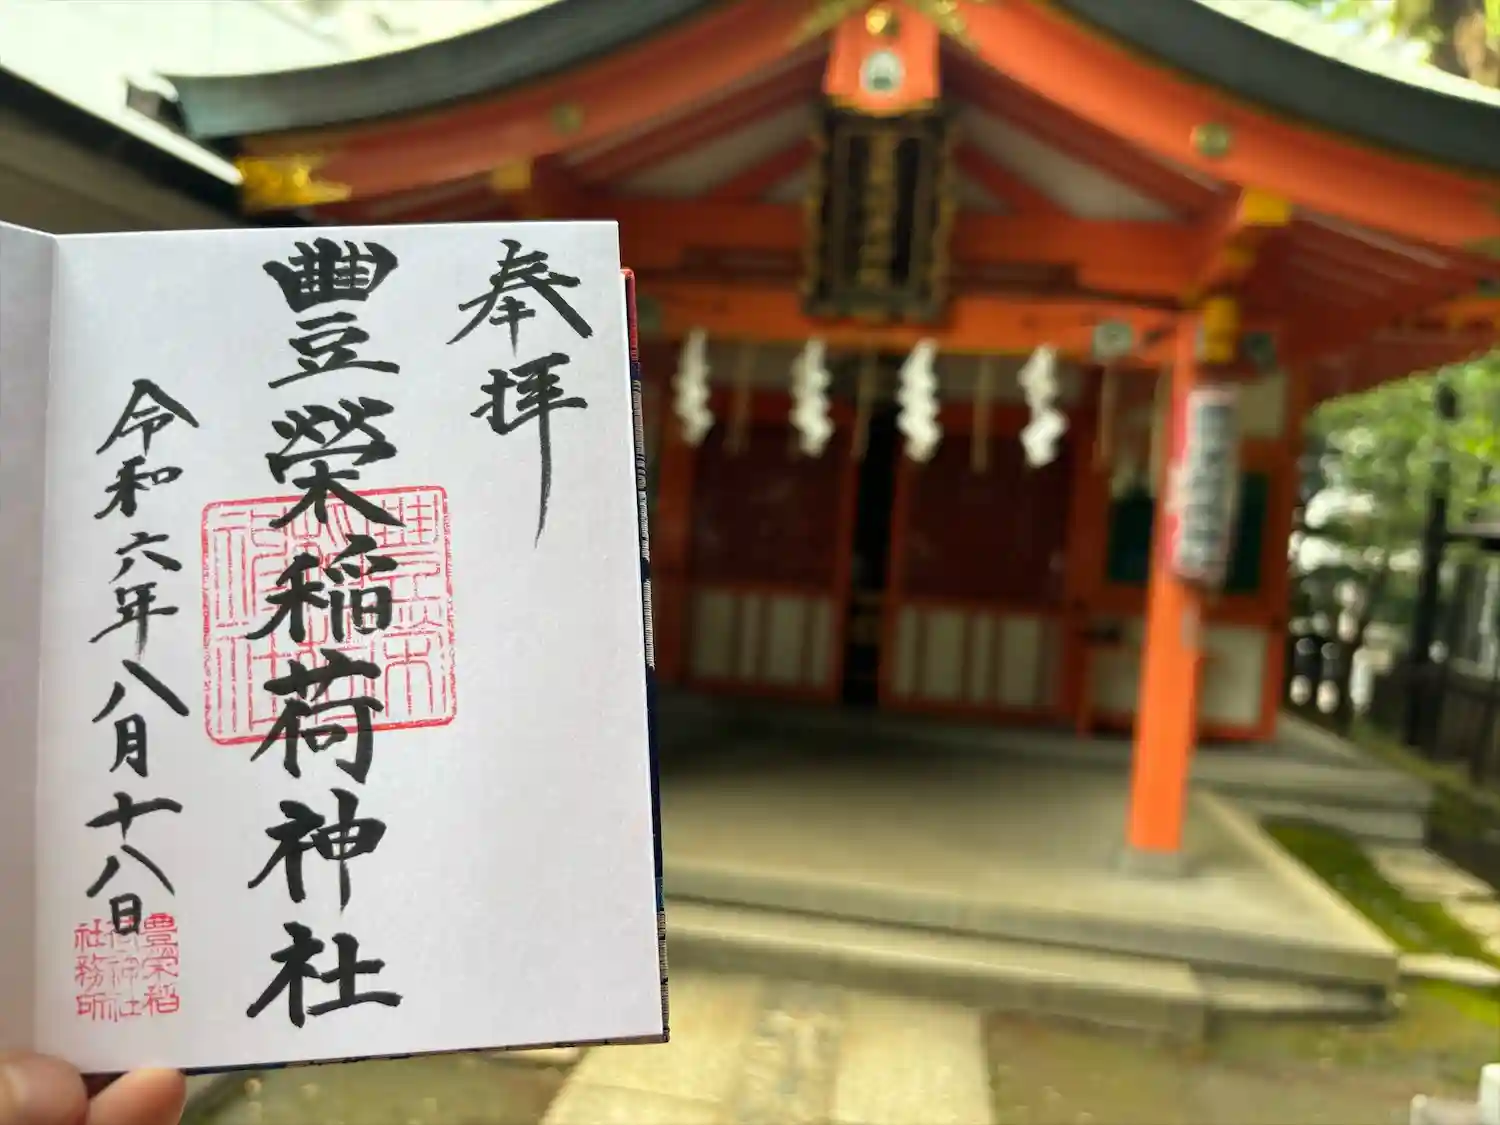 奉拝
豐榮稲荷神社
令和六年八月十八日
豊栄稲
荷神社
社務所